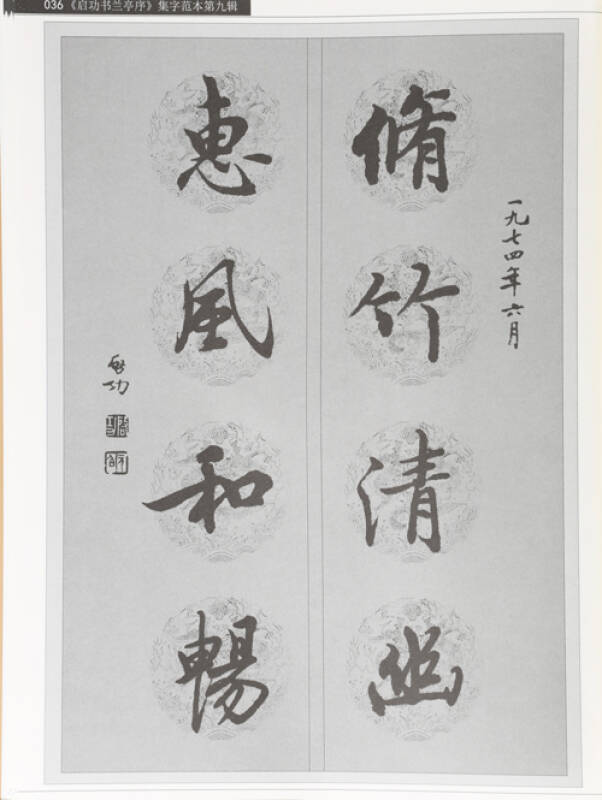 036《启功书兰亭序》集字范本第九辑
一九七四年六月
脩竹清幽
惠風和暢
啟功